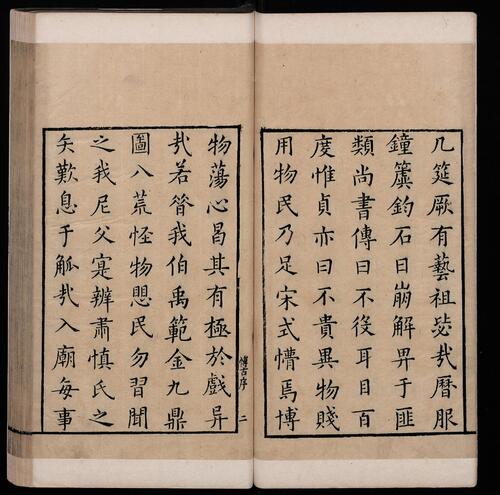 几筵厥有藝祖毖㢤曆服
鐘簴鈞石日崩解畀于匪
類尚書傳曰不役耳目百
度惟貞亦曰不貴異物賤
用物民乃足宋式懵焉博
物蕩心曷其有極於戲异
㢤若昝我伯禹範金九鼎
圖八荒怪物愳民勿習聞
之我尼父寔辨肅慎氏之
矣歎息于觚㢤入廟每事
博古序 二